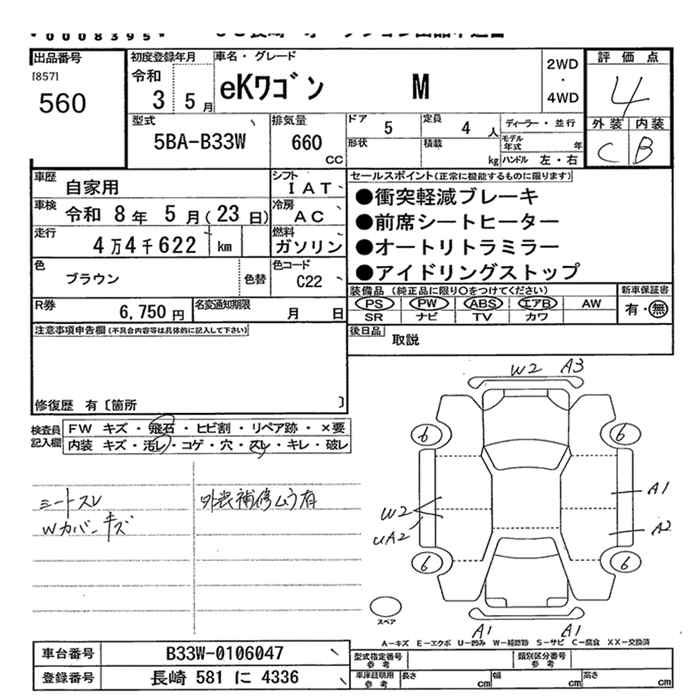 00008395
出品番号
[857]
560
初度登録年月
令和
3 5月
車名・グレード
eKワゴン M
2WD
・
4WD
評価点
4
外装 内装
C B
型式
5BA-B33W
排気量
660
CC
ドア
5
定員
4人
形状
積載
kg
ディーラー・並行
モデル年式
年
ハンドル 左・右
車歴
自家用
シフト
IAT
車検
令和 8年 5月(23日)
冷房
AC
走行
4万4千622 km
燃料
ガソリン
色
ブラウン
色替
色コード
C22
R券
6,750円
名変通知期限
月 日
セールスポイント(正常に機能するものに限ります)
●衝突軽減ブレーキ
●前席シートヒーター
●オートリトラミラー
●アイドリングストップ
装備品(純正品に限り○をつけてください)
PS PW ABS エアB AW
SR ナビ TV カワ
新車保証書
有・無
後日品
取説
注意事項申告欄(不具合内容等は具体的に記入して下さい)
修復歴 有〔箇所 〕
検査員
記入欄
FW キズ・飛石・ヒビ割・リペア跡・×要
内装 キズ・汚レ・コゲ・穴・スレ・キレ・破レ
シートスレ
Wカバーキズ
外装補修ムラ有
W2 A3
6 6
W2
UA2
A1
A2
6 6
A1 A1
スペア
A-キズ E-エクボ U-凹み W-補修跡 S-サビ C-腐食 XX-交換済
車台番号
B33W-0106047
登録番号
長崎 581 に 4336
型式指定番号
参考
類別区分番号
参考
車庫証明用
参考
長さ
cm
幅
cm
高さ
cm